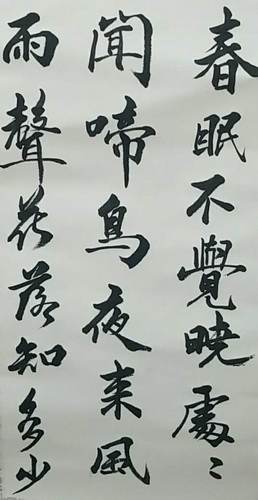 春眠不覺曉處〻
聞啼鳥夜来風
雨聲花落知多少